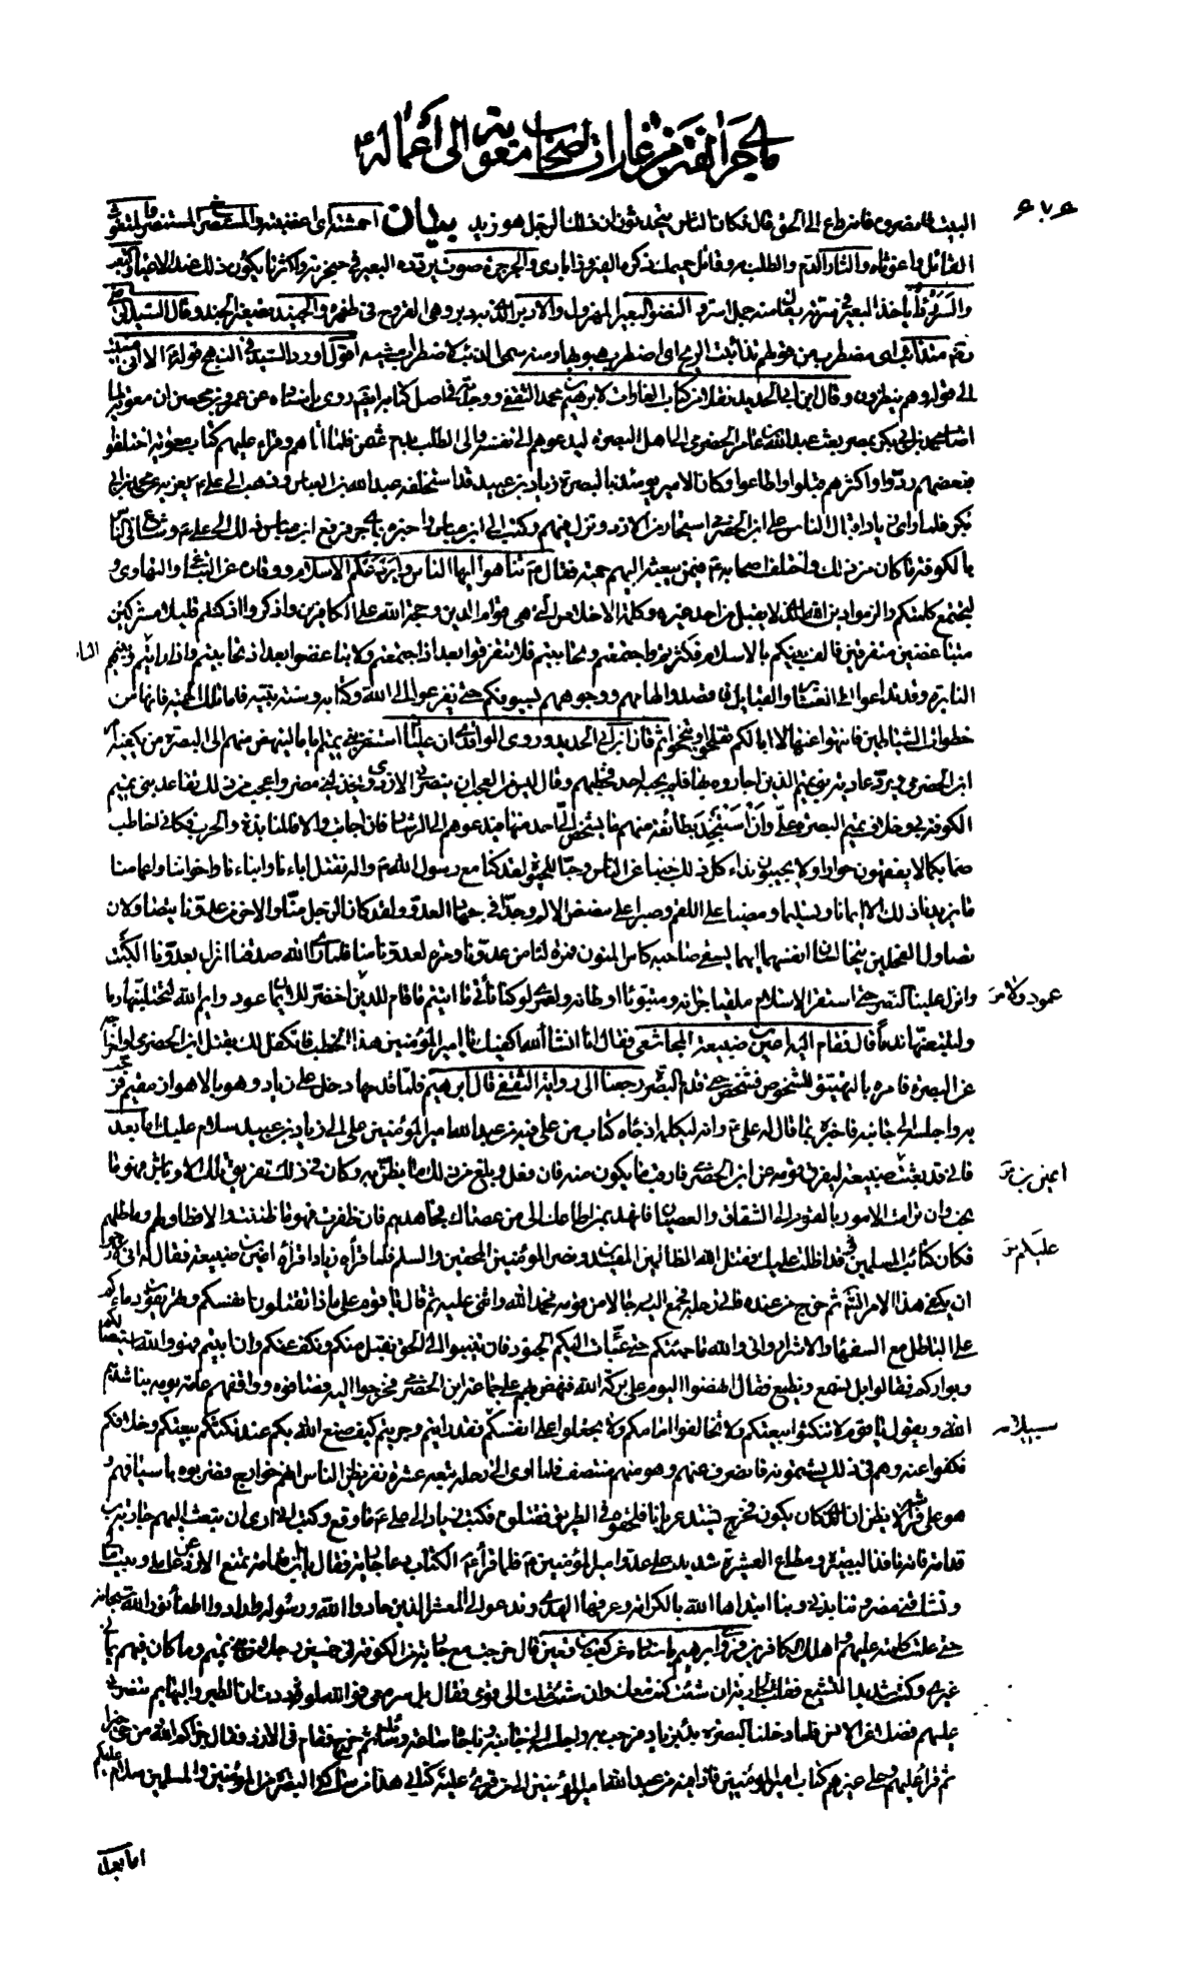 ما جرى من الفتن من غارات أصحاب معوية إلى أعماله
البيت فما مضروه فانه رجع إلى الحق قال فكان الناس يتحدثون ان ذلك الرجل هو زيد بيان احمشته اى اغضبته والمستصرخ المستنصر
القائل واغوثاه والثار الدم والطلب به وقائل حميمك ذكره الفيروزابادى والجرجرة صوت يردده البعير فى حنجرته واكثر ما يكون ذلك عند الاعياء
والسرر داء ياخذ البعير فى سرته يقال منه جمل اسر والنضو البعير المهزول والادبر الذى به دبر وهى القروح فى ظهره والجنيد تصغير الجند وقال السيد الرضى
ره متذائب اى مضطرب من قولهم تذائبت الريح اى اضطرب هبوبها ومنه سمى الذئب لاضطراب مشيه اقول اورد السيد فى النهج قوله الا انى
الى قوله وهم ينظرون وقال ابن ابى الحديد نقلا من كتاب الغارات لابرهيم بن محمد الثقفى ووجدته فى اصل كتابه ايضا روى باسناده عن عمرو بن محصن ان معوية لما
اصاب محمد بن ابى بكر بمصر بعث عبد الله بن عامر الحضرمى الى اهل البصرة ليدعوهم الى نفسه والى الطلب بدم عثمن فلما اتاهم وقراء عليهم كتاب معوية اختلفوا
فبعضهم ردوا واكثرهم قبلوا واطاعوا وكان الامير يومئذ بالبصرة زياد بن عبيد قد استخلفه عبد الله بن العباس وذهب الى على ع يعزيه عن محمد بن ابى
بكر فلما راى زياد اقبال الناس على ابن الحضرمى استجار من الازد ونزل فيهم وكتب الى ابن عباس واخبره بما جرى فرفع ابن عباس ذلك الى على ع وشاع فى الناس
بالكوفة ما كان من ذلك واختلف اصحابه ع فيمن يبعثه اليهم حمية فقال ع تناهوا ايها الناس وليردعكم الاسلام ووقاره عن التباغى والتهاوى و
ليجتمع كلمتكم والزموا دين الله الذى لا يقبل من احد غيره وكلمة الاخلاص التى هى قوام الدين وحجة الله على الكافرين واذكروا اذ كنتم قليلا مشركين
متباغضين متفرقين فالف بينكم بالاسلام فكثرتم واجتمعتم وتحاببتم فلا تتفرقوا بعد اذ اجتمعتم ولا تباغضوا بعد اذ تحاببتم واذا رايتم
النايرة وقد تداعوا الى العشاير والقبايل فاقصدوا لهامهم ووجوههم بسيوفكم حتى يفزعوا الى الله وكتابه وسنة نبيه فاما تلك الحمية فانها من
خطوات الشياطين فانتهوا عنها لا ابا لكم تفلحوا وتنجحوا ثم قال ابن ابى الحديد وروى الواقدى ان عليا استنفر بنى تميم اياما لينهض منهم الى البصرة من يكفيه امر
ابن الحضرمى ويرد عادية بنى تميم الذين اجاروه بها فلم يجبه احد فخطبهم وقال اليس من العجب ان ينصرنى الازدى ويخذلنى مضر واعجب من ذلك تقاعد بنى تميم
الكوفة بى وخلاف تميم البصرة على وان استنجد بطائفة منهم ما يشخص الى احد منها فيدعوهم الى الرشاد فان اجابت والا فالمنابذة والحرب فكانى اخاطب
صما بكما لا يفقهون حوارا ولا يجيبون نداء كل ذلك جبنا عن الناس وحبا للحيوة لقد كنا مع رسول الله ص واله نقتل اباءنا وابناءنا واخواننا واعمامنا
ما يزيدنا ذلك الا ايمانا وتسليما ومضيا على اللقم وصبرا على مضض الالم وجدا فى جهاد العدو ولقد كان الرجل منا والاخر من عدونا يتصاولان
تصاول الفحلين يتخالسان انفسهما ايهما يسقى صاحبه كاس المنون فمرة لنا من عدونا ومرة لعدونا منا فلما راى الله صدقنا انزل بعدونا الكبت
وانزل علينا النصر حتى استقر الاسلام ملقيا جرانه ومتبوئا اوطانه ولعمرى لو كنا نأتى ما اتيتم ما قام للدين عمود ولا اخضر للايمان عود وايم الله لتحتلبنها دما
ولتتبعنها ندما قال فقام اليه اعين بن ضبيعة المجاشعى فقال انا انشاء الله اكفيك يا امير المؤمنين هذا الخطب فاتكفل لك بقتل ابن الحضرمى او اخراجه
عن البصرة فامره بالتهيئو للشخوص فشخص حتى قدم البصرة رجعنا الى رواية الثقفى قال ابرهيم فلما قدمها دخل على زياد وهو بالاهواز مقيم فرحب
به واجلسه الى جانبه فاخبره بما قال له على ع وانه ليكلمه اذ جاءه كتاب من على فيه من عبد الله امير المؤمنين على الى زياد بن عبيد سلام عليك اما بعد
فانى قد بعثت اعين بن ضبيعة ليفرق قومه عن ابن الحضرمى فارقب ما يكون منه فان فعل وبلغ من ذلك ما يظن به وكان فى ذلك تفريق تلك الاوباش فهو ما
نحب وان ترامت الامور بالقوم الى الشقاق والعصيان فانهد بمن اطاعك الى من عصاك فجاهدهم فان ظفرت فهو ما ظننت والا فطاولهم وماطلهم
فكان كتائب المسلمين قد اظلت عليك فقتل الله الظالمين المفسدين ونصر المؤمنين المحقين والسلم فلما قرأه زياد اقرأه اعين بن ضبيعة فقال له انى لارجوا
ان يكفى هذا الامر انشاء الله ثم خرج من عنده فاتى رحله فجمع اليه رجالا من قومه فحمد الله واثنى عليه ثم قال يا قوم على ماذا تقتلون انفسكم وتهريقون دماءكم
على الباطل مع السفهاء والاشرار وانى والله ما جئتكم حتى عبأت اليكم الجنود فان تنيبوا الى الحق نقبل منكم ونكف عنكم وان ابيتم فهو والله استيصالكم
وبواركم فقالوا بل نسمع ونطيع فقال انهضوا اليوم على بركة الله فنهض بهم على جماعة ابن الحضرمى فخرجوا اليه فصافوه وواقفهم عامة يومه يناشدهم
الله ويقول يا قوم لا تنكثوا بيعتكم ولا تخالفوا امامكم ولا تجعلوا على انفسكم سبيلا فقد رايتم وجربتم كيف صنع الله بكم عند نكثكم بيعتكم وخلافكم
فكفوا عنه وهم فى ذلك يشتمونه فانصرف عنهم وهو منهم منتصف فلما اوى الى رحله تبعه عشرة نفر يظن الناس انهم خوارج فضربوه باسيافهم و
هو على فراشه لا يظن ان الذى كان يكون فخرج يشتد عريانا فلحقوه فى الطريق فقتلوه فكتب زياد الى على ع ما وقع وكتب انى ارى ان تبعث اليهم جارية بن
قدامة فانه نافذ البصيرة ومطاع العشيرة شديد على عدو امير المؤمنين ع فلما قرأ ع الكتاب دعا جارية فقال يا ابن قدامة تمنع الازد عن عاملى وبيت مالى
وتشاقنى مضر وتنابذنى وبنا ابتداها الله بالكرامة وعرفها الهدى وتدعوا الى المعشر الذين حادوا الله ورسوله وارادوا اطفاء نور الله سبحانه
حتى علت كلمته عليهم واهلك الكافرين فروى ابرهيم باسناده عن كعب بن قعين قال خرجت مع جارية من الكوفة فى خمسين رجلا من بنى تميم وما كان فيهم يمانى
غيرى وكنت شديد التشيع فقلت لجارية ان شئت كنت معك وان شئت ملت الى قومى فقال بل سر معى فوالله لوددت ان الطير والبهايم تنصرنى
عليهم فضلا عن الانس فلما دخلنا البصرة بدء بزياد فرحب به واجلسه الى جانبه وناجاه ساعة وسائله ثم خرج فقام فى الازد فقال جزاكم الله من حى خيرا
ثم قرأ عليهم وعلى غيرهم كتاب امير المؤمنين فاذا فيه من عبد الله على امير المؤمنين الى من قرئ عليه كتابى هذا من ساكنى البصرة من المؤمنين والمسلمين سلام عليكم
اما بعد
عمود ولا مر
اعين بن مر
عليكم مر
سبيلا مر